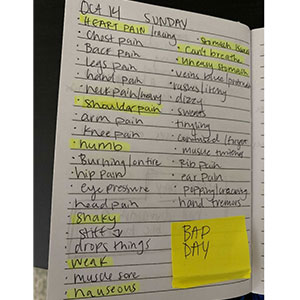 OCT 14 SUNDAY
HEART PAIN / racing
· Chest pain
· Back pain
· legs pain
· hand pain
· neck pain/heavy
· shoulder pain
· arm pain
· knee pain
· numb
· Burning/on fire
· hip pain
· eye pressure
· head pain
· shaky
· stiff
· drops things
· weak
· muscle sore
· nauseous
· Stomach
· Can't breathe
· uneasy stomach
· veins blue/
· rashes/itchy
· dizzy
· sweats
· tingling
· confused/
· muscle
· Rib pain
· ear pain
· popping/cracking
· hand tremors
BAD
DAY